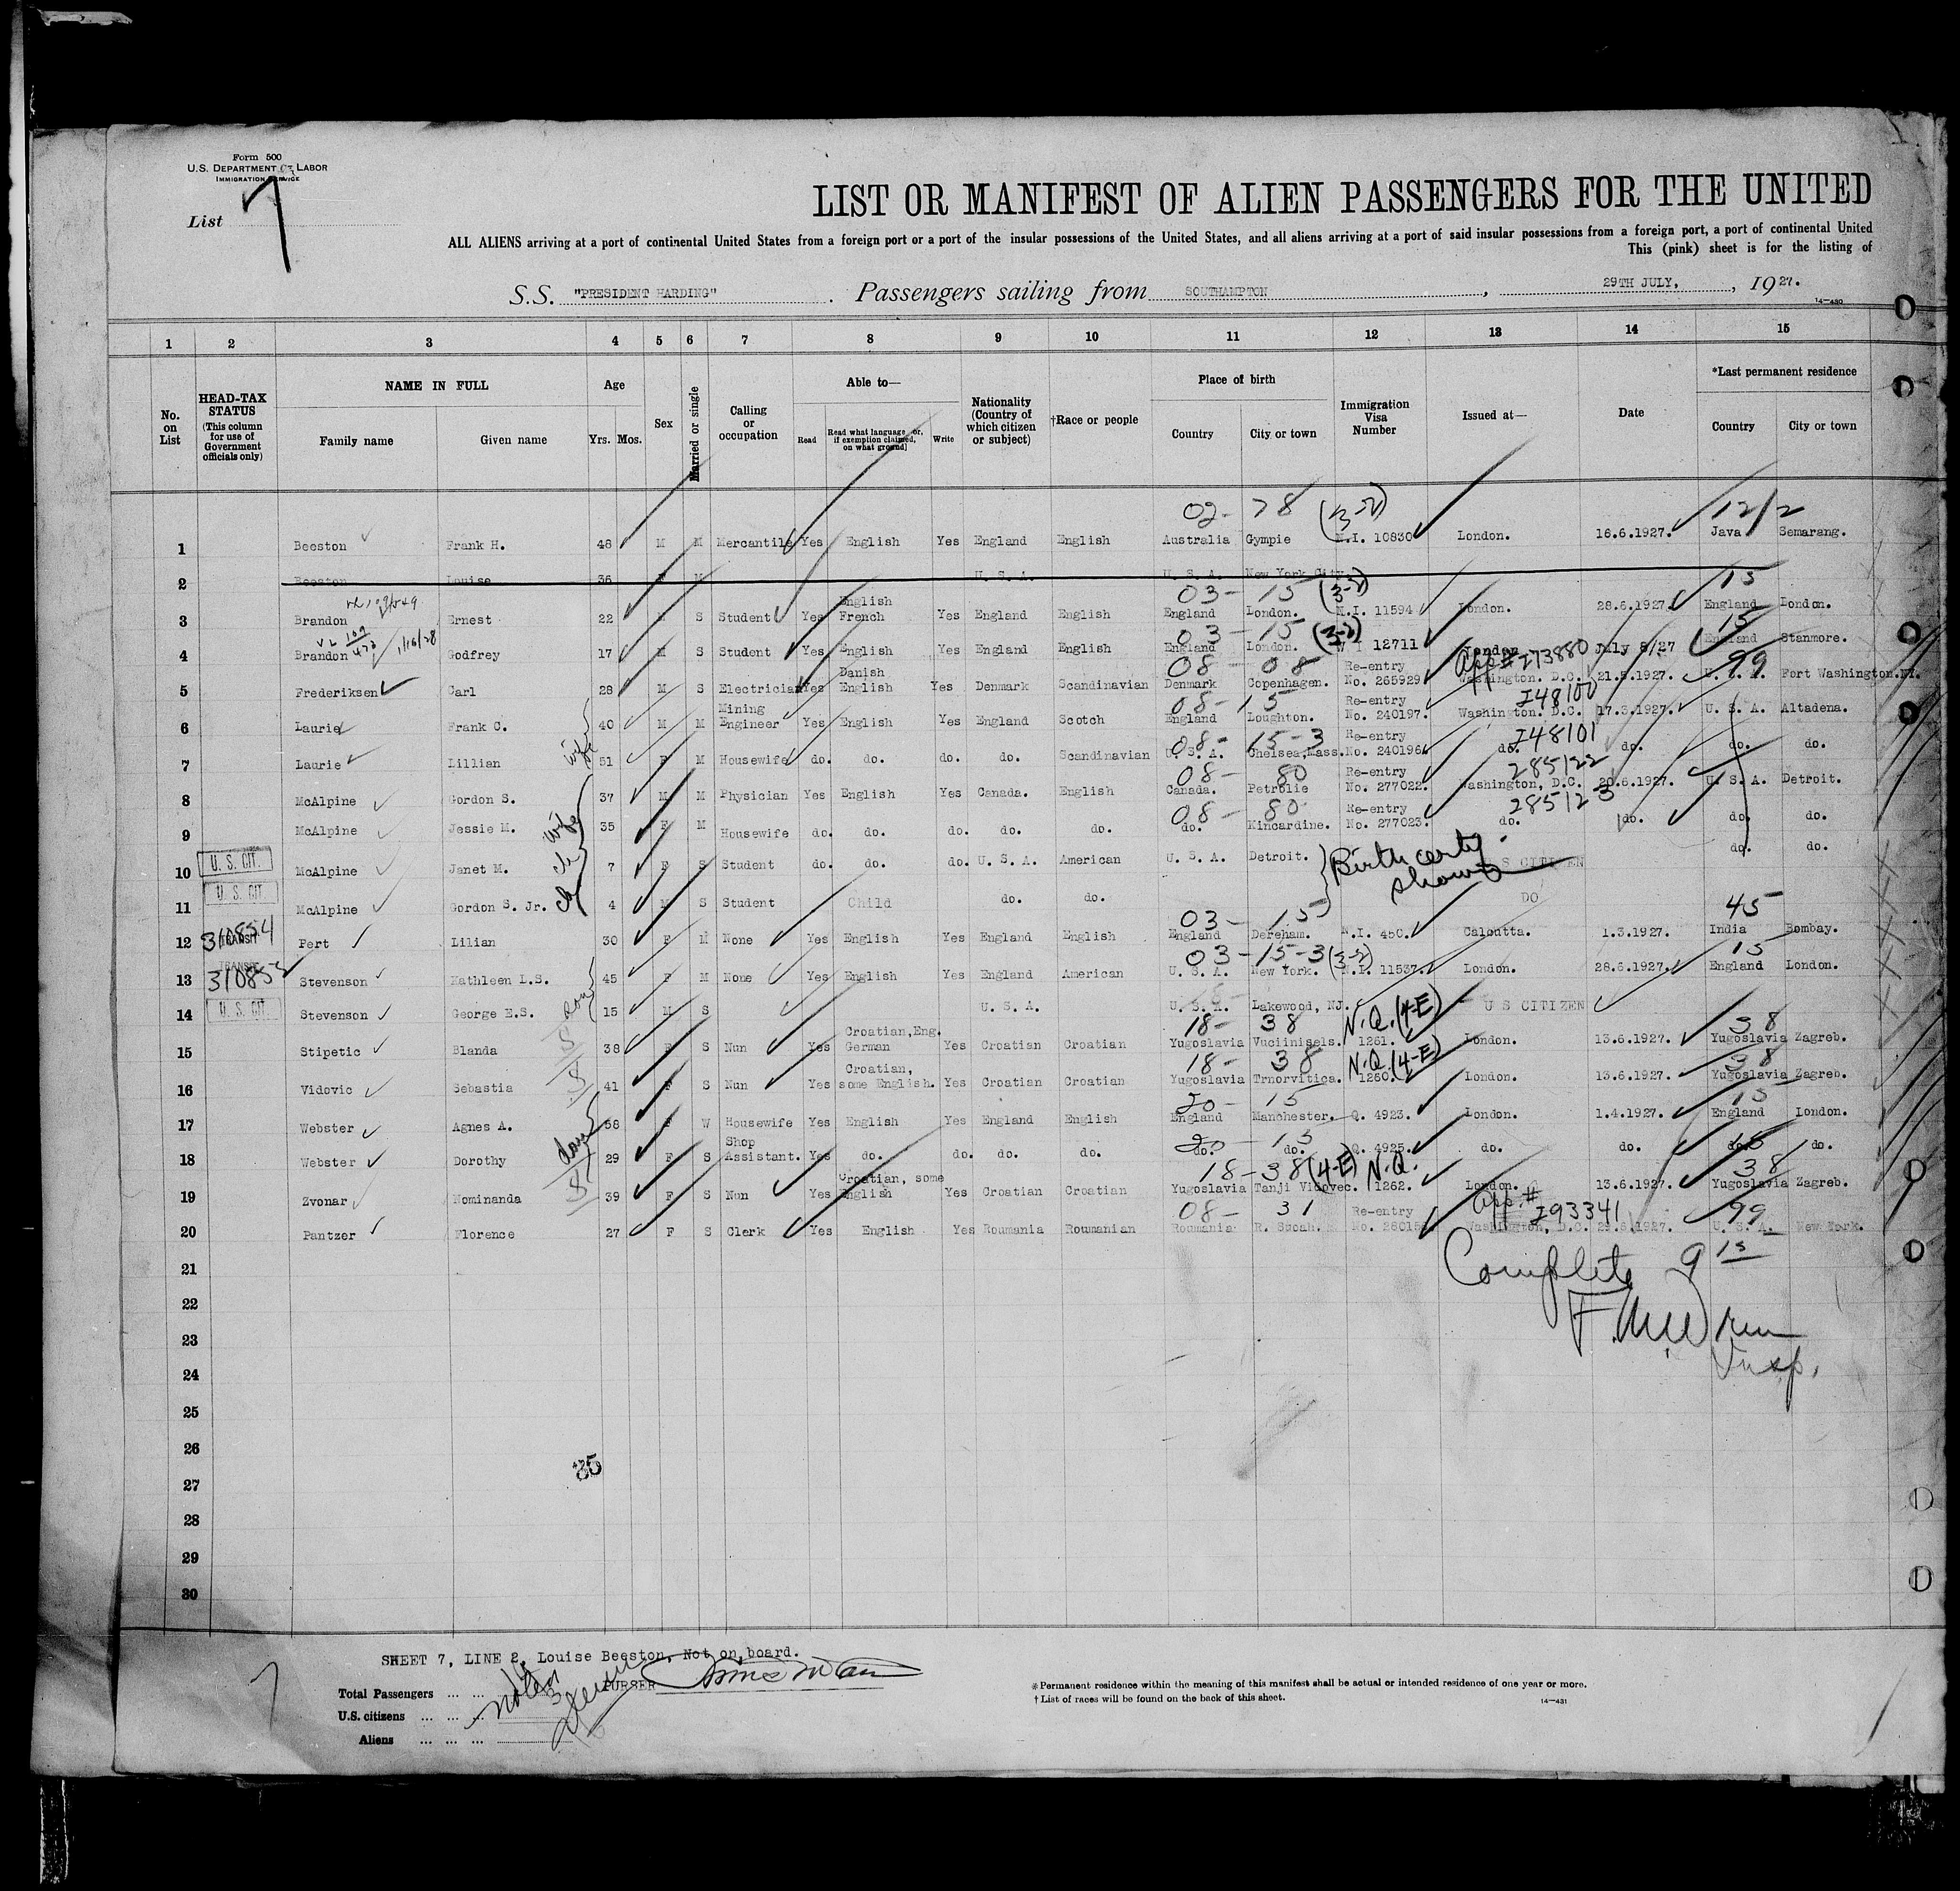 Form 500
U.S. DEPARTMENT OF LABOR
IMMIGRATION SERVICE
List 7
LIST OR MANIFEST OF ALIEN PASSENGERS FOR THE UNITED
ALL ALIENS arriving at a port of continental United States from a foreign port or a port of the insular possessions of the United States, and all aliens arriving at a port of said insular possessions from a foreign port, a port of continental United
This (pink) sheet is for the listing of
S.S. "PRESIDENT HARDING" . Passengers sailing from SOUTHAMPTON , 29TH JULY, , 1927.
14—430
1 2 3 4 5 6 7 8 9 10 11 12 13 14 15
No. on List
HEAD-TAX STATUS (This column for use of Government officials only)
NAME IN FULL
Family name Given name
Age
Yrs. Mos.
Sex
Married or single
Calling or occupation
Able to—
Read Read what language [or, if exemption claimed, on what ground] Write
Nationality (Country of which citizen or subject)
†Race or people
Place of birth
Country City or town
Immigration Visa Number
Issued at—
Date
*Last permanent residence
Country City or town
02- 78 (3-2) 12/2
1 Beeston Frank H. 48 M M Mercantile Yes English Yes England English Australia Gympie N.I. 10830 London. 16.6.1927. Java Semarang.
2 Beeston Louise 36 F M U. S. A. U. S. A. New York City
03- 15 (3-2) 15
3 Brandon Ernest 22 M S Student Yes English French Yes England English England London. N.I. 11594 London. 28.6.1927. England London.
1/16/28 03-15 (3-2) 15
4 Brandon Godfrey 17 M S Student Yes English Yes England English England London. 12711 London July 8/27 England Stanmore.
08- 08 App# I73880 99
5 Frederiksen Carl 28 M S Electrician Yes Danish English Yes Denmark Scandinavian Denmark Copenhagen. Re-entry No. 265929 Washington. D.C. 21.5.1927. U. S. A. Fort Washington.NY.
08- 15 I48100
6 Laurie Frank C. 40 M M Mining Engineer Yes English Yes England Scotch England Loughton. Re-entry No. 240197. Washington. D.C. 17.3.1927. U. S. A. Altadena.
wife 08- 15-3 I48101
7 Laurie Lillian 51 F M Housewife do. do. do. do. Scandinavian U. S. A. Chelsea,Mass. Re-entry No. 240196. do. do. do. do.
08- 80 285122
8 McAlpine Gordon S. 37 M M Physician Yes English Yes Canada. English Canada. Petrolie Re-entry No. 277022. Washington, D.C. 20.6.1927. U. S. A. Detroit.
wife 08- 80 285123
9 McAlpine Jessie M. 35 F M Housewife do. do. do. do. do. do. Kincardine. Re-entry No. 277023. do. do. do. do.
10 U. S. CIT. McAlpine Janet M. 7 F S Student do. do. do. U. S. A. American U. S. A. Detroit. U S CITIZEN do. do.
Birth certf. shown
11 U. S. CIT. McAlpine Gordon S. Jr. 4 M S Student Child do. do. DO
03- 15 45
12 310854 TRANSIT Pert Lilian 30 F M None Yes English Yes England English England Dereham. N.I. 450. Calcutta. 1.3.1927. India Bombay.
03-15-3 (3-2) 15
13 TRANSIT 310853 Stevenson Kathleen L.S. 45 F M None Yes English Yes England American U. S. A. New York. N.I. 11537. London. 28.6.1927. England London.
14 U. S. CIT. Stevenson George E.S. son 15 M S U. S. A. U. S. A. Lakewood, NJ. U S CITIZEN
18- 38 N.Q.(4-E) 38
15 Stipetic Blanda 38 F S Nun Yes Croatian,Eng. German Yes Croatian Croatian Yugoslavia Vuciinisels. 1261. London. 13.6.1927. Yugoslavia Zagreb.
18- 38 N.Q.(4-E) 38
16 Vidovic Sebastia 41 F S Nun Yes Croatian, some English. Yes Croatian Croatian Yugoslavia Trnorvitica. 1260. London. 13.6.1927. Yugoslavia Zagreb.
20- 15 15
17 Webster Agnes A. 58 F W Housewife Yes English Yes England English England Manchester. Q. 4923. London. 1.4.1927. England London.
20- 15 15
18 Webster Dorothy dau 29 F S Shop Assistant. Yes do. do. do. do. do. do. Q. 4925. do. do. do. do.
18-38 (4-E) N.Q. 38
19 Zvonar Nominanda 39 F S Nun Yes Croatian, some English Yes Croatian Croatian Yugoslavia Tanji Vidovec. 1262. London. 13.6.1927. Yugoslavia Zagreb.
08- 31 App.# I93341 99
20 Pantzer Florence 27 F S Clerk Yes English Yes Roumania Roumanian Roumania Re-entry Washington, D.C. U. S. A. New York.
21 Complete 9 15
22
23
24 Insp.
25
26
27 85
28
29
30
SHEET 7, LINE 2, Louise Beeston, Not on board.
PURSER
Total Passengers
U.S. citizens
Aliens
*Permanent residence within the meaning of this manifest shall be actual or intended residence of one year or more.
†List of races will be found on the back of this sheet.
14—431